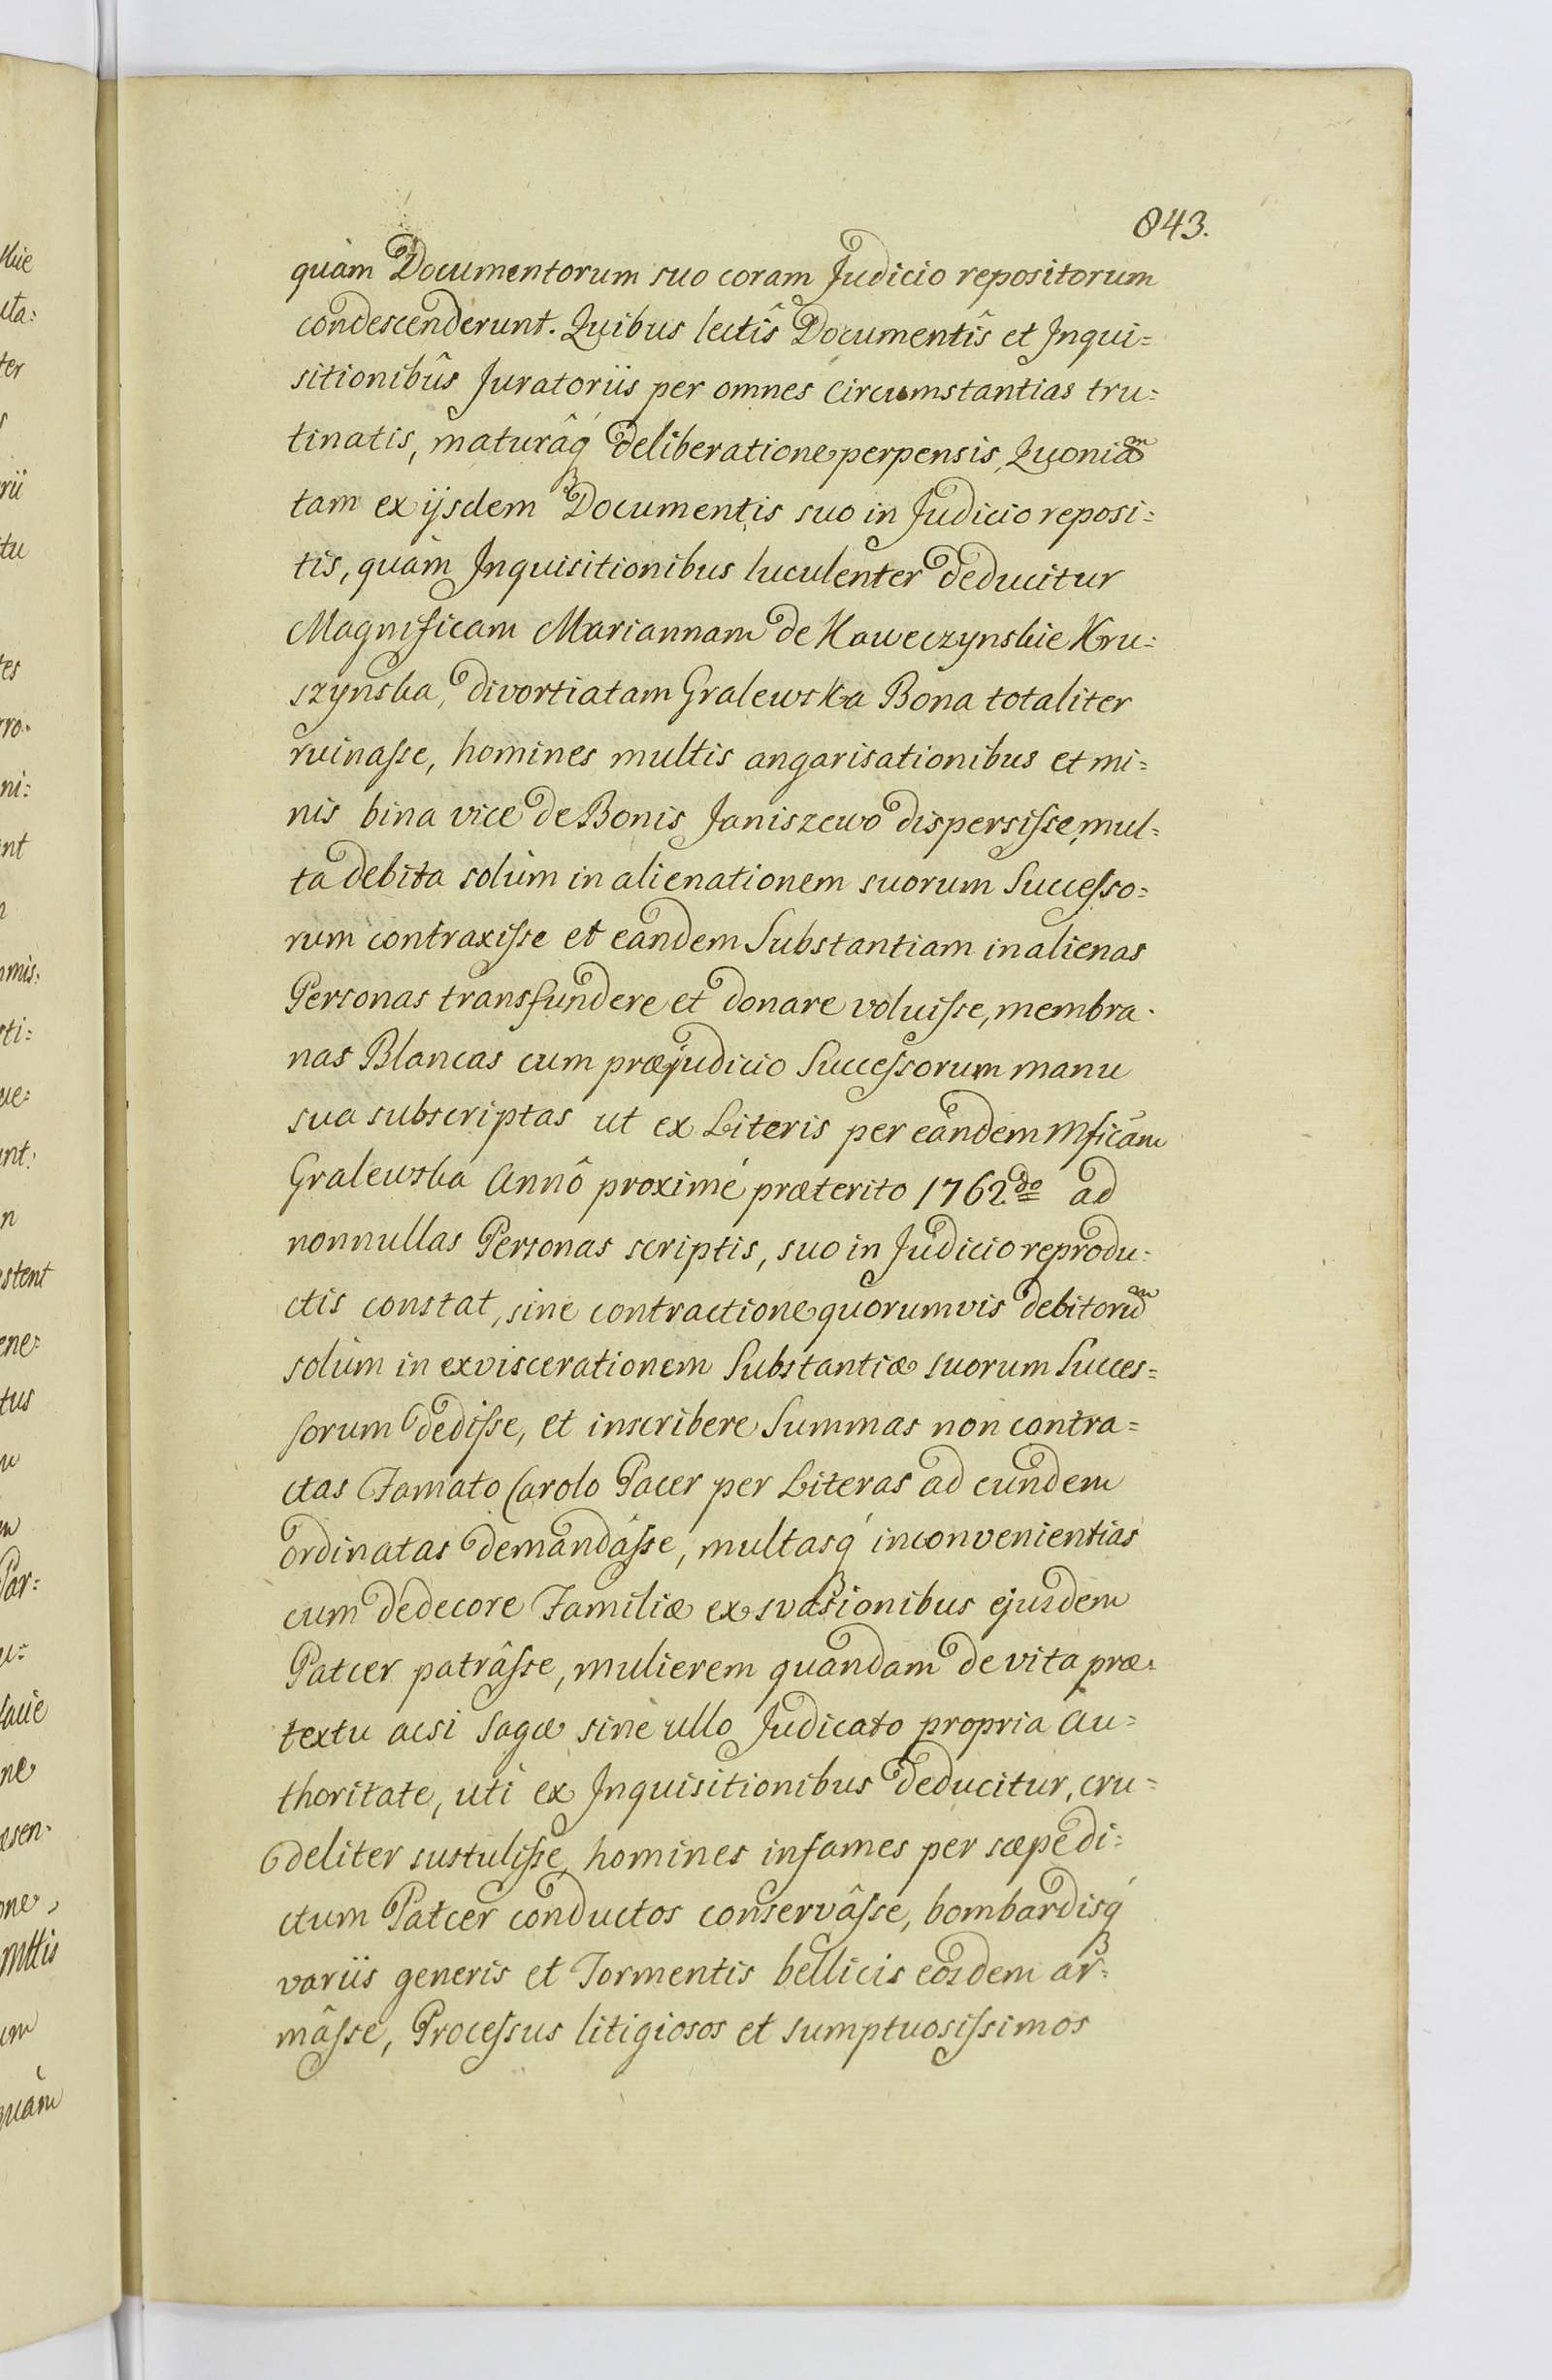 843.
quàm Documentorum suo coram Judicio repositorum
condescenderunt. Quibus lectîs Documentîs et Inqui=
sitionibûs Juratoriis per omnes Circumstantias tru=
tinatis, maturâq́ꝫ deliberatione perpensis, Quoniam
tam ex ijsdem Documentis suo in Judicio reposi=
tis, quàm Inquisitionibus luculenter deducitur
Magnificam Mariannam de Kaweczynskie Kru=
szynska, divortiatam Gralewska Bona totaliter
ruinaſse, homines multis angarisationibus et mi=
nis bina vice de Bonis Janiszewo dispersiſse, mul=
ta debita solùm in alienationem suorum Succeſso=
rum contraxiſse et eandem Substantiam in alienas
Personas transfundere et donare voluiſse, membra=
nas Blancas cum præjudicio Succeſsorum manu
sua subscriptas ut ex Literis per eandem Mficam
Gralewska Annô proximé præterito 1762do ad
nonnullas Personas scriptis, suo in Judicio reprodu=
ctis constat, sine contractione quorumvis debitorum
solùm in exviscerationem Substantiæ suorum Succes=
sorum dediſse, et inscribere Summas non contra=
ctas Famato Carolo Pacer per Literas ad eundem
ordinatas demandâſse, multasq́ꝫ inconvenientias
cum dedecore Familiæ ex svasionibus ejusdem
Patcer patrâſse, mulierem quandam de vita præ=
textu acsi sagæ sine ullo Judicato propria au=
thoritate, uti ex Inquisitionibus deducitur, cru=
deliter sustuliſse, homines infames per sæpe di=
ctum Patcer conductos conservâſse, bombardisq́ꝫ
variis generis et Tormentis bellicis eosdem ar=
mâſse, Proceſsus litigiosos et sumptuosiſsimos